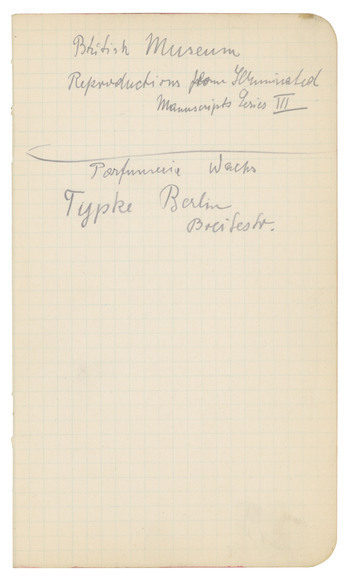 British Museum
Reproductions from Illuminated
Manuscripts Series III
Parfumerie Wachs
Typke Berlin
Breitestr.